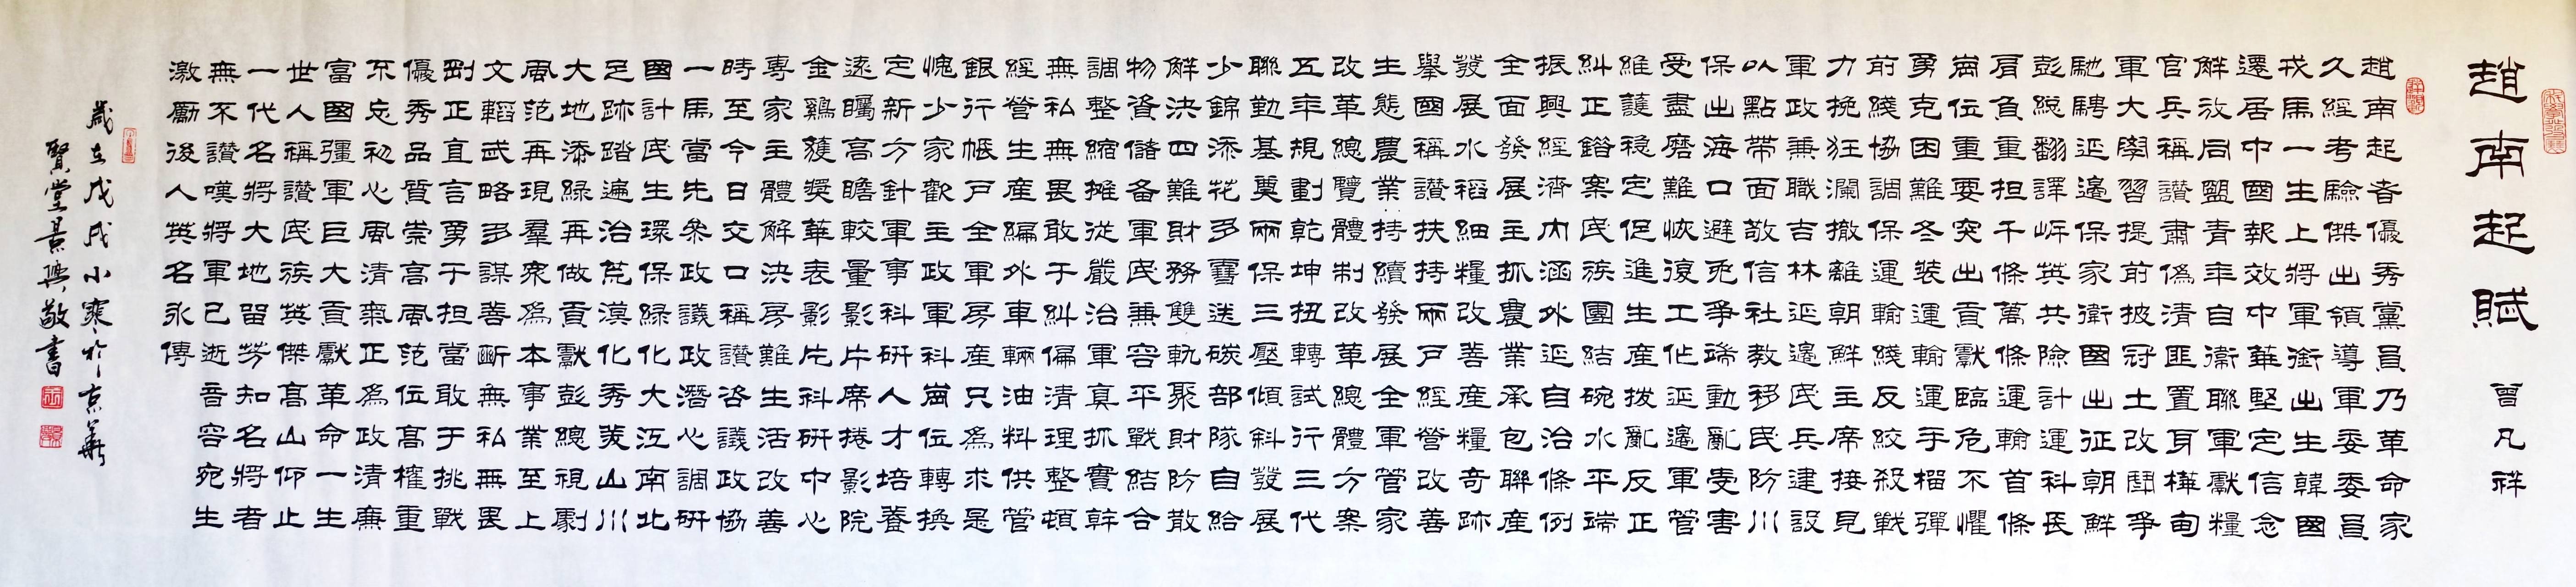 趙南起賦 曾凡祥
趙南起者優秀黨員乃革命家
久經考驗傑出領導軍委委員
戎馬一生上將軍銜出生韓國
還居中國報效中華堅定信念
解放同盟青年自衛聯軍獻糧
官兵稱讚肅偽清匪置身樺甸
軍大學習提前披冠土改鬭爭
馳騁延邊保家衛國出征朝鮮
彭總翻譯岍英共險計運科長
肩負重担千條萬條運輸首條
崗位重要突出貢獻臨危不懼
勇克困難冬裝運輸運手榴彈
前綫協調保運輸綫反絞殺戰
力挽狂瀾撤離朝鮮主席接見
軍政兼職吉林延邊民兵建設
以點帶面敬信社教移民防川
保出海口避免爭端動亂受害
受盡磨難恢復工作延邊軍管
維護穩定促進生產拔亂反正
糾正錯案民族團結碗水平端
振興經濟內涵外延自治條例
全面發展主抓農業承包聯產
發展水稻細糧改善產糧奇跡
舉國稱讚扶持兩戶經營改善
生態農業持續發展全軍管家
改革總覽體制改革總體方案
五年規劃乾坤扭轉試行三代
聯勤基奠兩保三壓傾斜發展
少錦添花多雪送碳部隊自給
解決四難財務雙軌聚財防散
物資儲備軍民兼容平戰結合
調整縮攤從嚴治軍真抓實幹
無私無畏敢于糾偏清理整頓
經營生產編外車輛油料供管
銀行帳戶全軍房產只爲求是
愧少家歡主政軍科崗位轉換
定新方針軍事科研人才培養
遠矚高瞻較量影片席捲影院
金鷄獲獎華表影片科研中心
專家主體解決房難生活改善
時至今日交口稱讚咨議政協
一馬當先參政議政潛心調研
國計民生環保綠化大江南北
足跡踏遍治荒漠化秀美山川
大地添綠再做貢獻彭總視尉
風范再現羣衆爲本事業至上
文韜武略多謀善斷無私無畏
剛正直言勇于担當敢于挑戰
優秀品質崇高風范位高權重
不忘初心風清氣正爲政清廉
富國疆軍巨大貢獻革命一生
世人稱讚民族英傑高山仰止
一代名將大地留芳知名將者
無不讚嘆將軍已逝音容宛生
激勵後人英名永傳
歲在戊戌小寒於京華
賢堂景興敬書